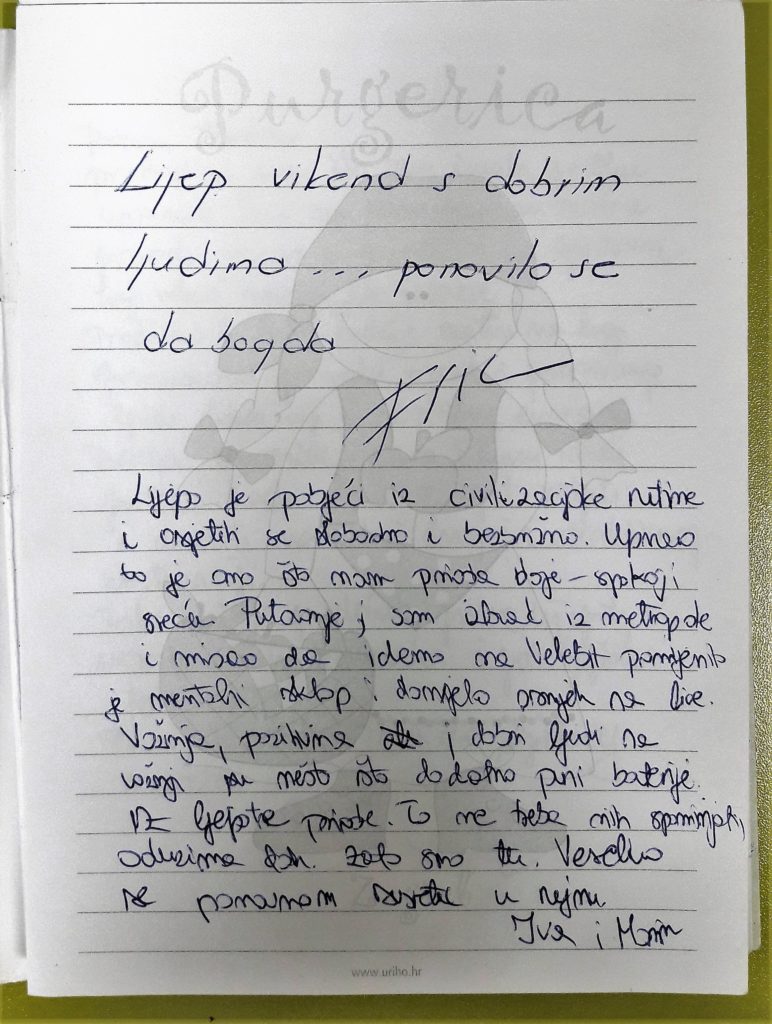 Purgerica
Lijep vikend s dobrim
ljudima ... ponovilo se
da bog da
Lijepo je pobjeći iz civilizacijske rutine
i osjetiti se slobodno i bezbrižno. Upravo
to je ono što nam priroda daje - spokoj i
sreću. Putovanje i sam izlazak iz metropole
i misao da idemo na Velebit promijenila
je mentalni sklop i donijela osmjeh na lice.
Vožnja, pozitivna i dobri ljudi na
vožnji su nešto što dodatno puni baterije
uz ljepote prirode. To ne treba niti spominjati,
oduzima dah. Zato smo tu. Veselimo
se ponovnom susretu u rujnu
Iva i Marin
www.uriho.hr